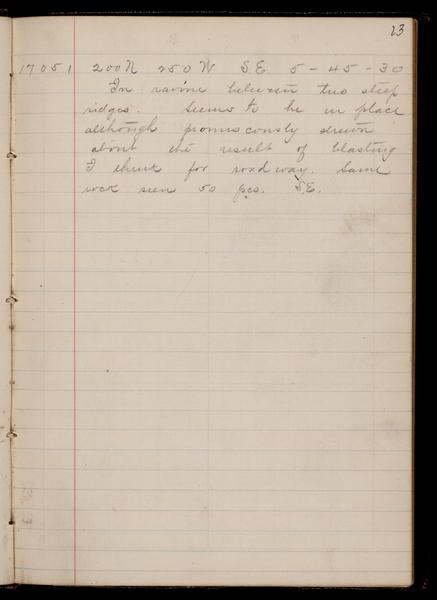 23
17051 200N 250W S.E. 5-45-30
In ravine between two steep
ridges. Seems to be in place
although promiscously strewn
about the result of blasting
I think for roadway. Same
rock seen 50 pcs. S.E.